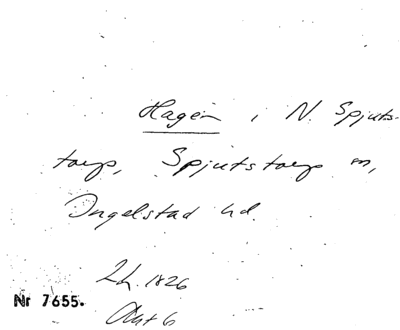 Hagen i N. Spjuts-
torp, Spjutstorp sn,
Ingelstad hd.
Lh. 1826
Nr 7655.
Akt 6